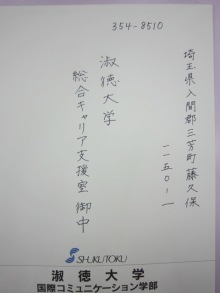 354-8510
埼玉県入間郡三芳町藤久保
一一五〇-一
淑徳大学
総合キャリア支援室 御中
SHUKUTOKU
淑徳大学
国際コミュニケーション学部